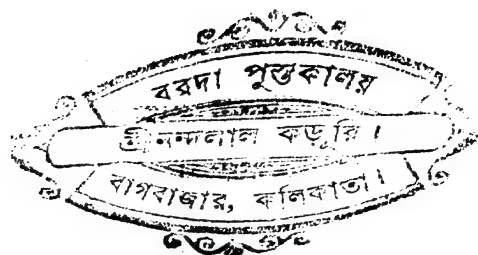 বরদা পুস্তকালয়
শ্রীনন্দলাল কড়ুরি।
বাগবাজার, কলিকাতা।